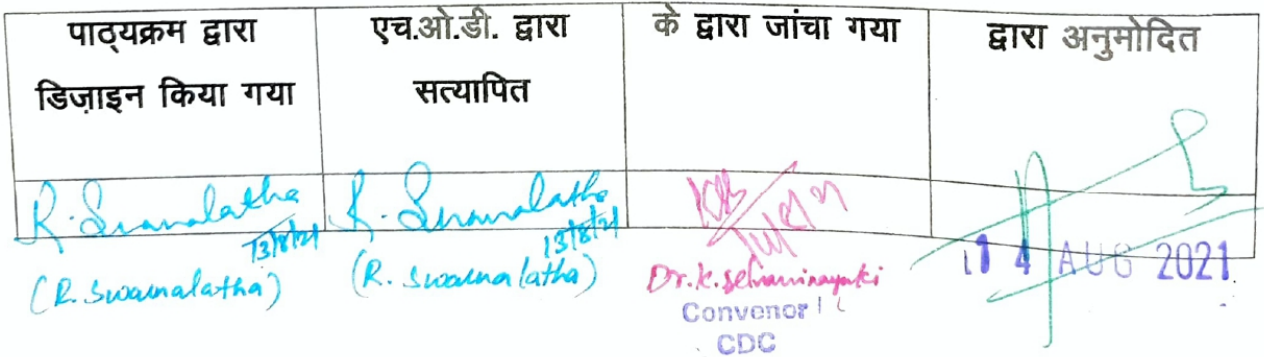 पाठ्यक्रम द्वारा
डिज़ाइन किया गया
एच.ओ.डी. द्वारा
सत्यापित
के द्वारा जांचा गया
द्वारा अनुमोदित
R. Swarnalatha
13/8/21
R. Swarnalatha
13/8/21
(R. Swarnalatha)
(R. Swarnalatha)
Dr. K.
Convenor
CDC
14 AUG 2021